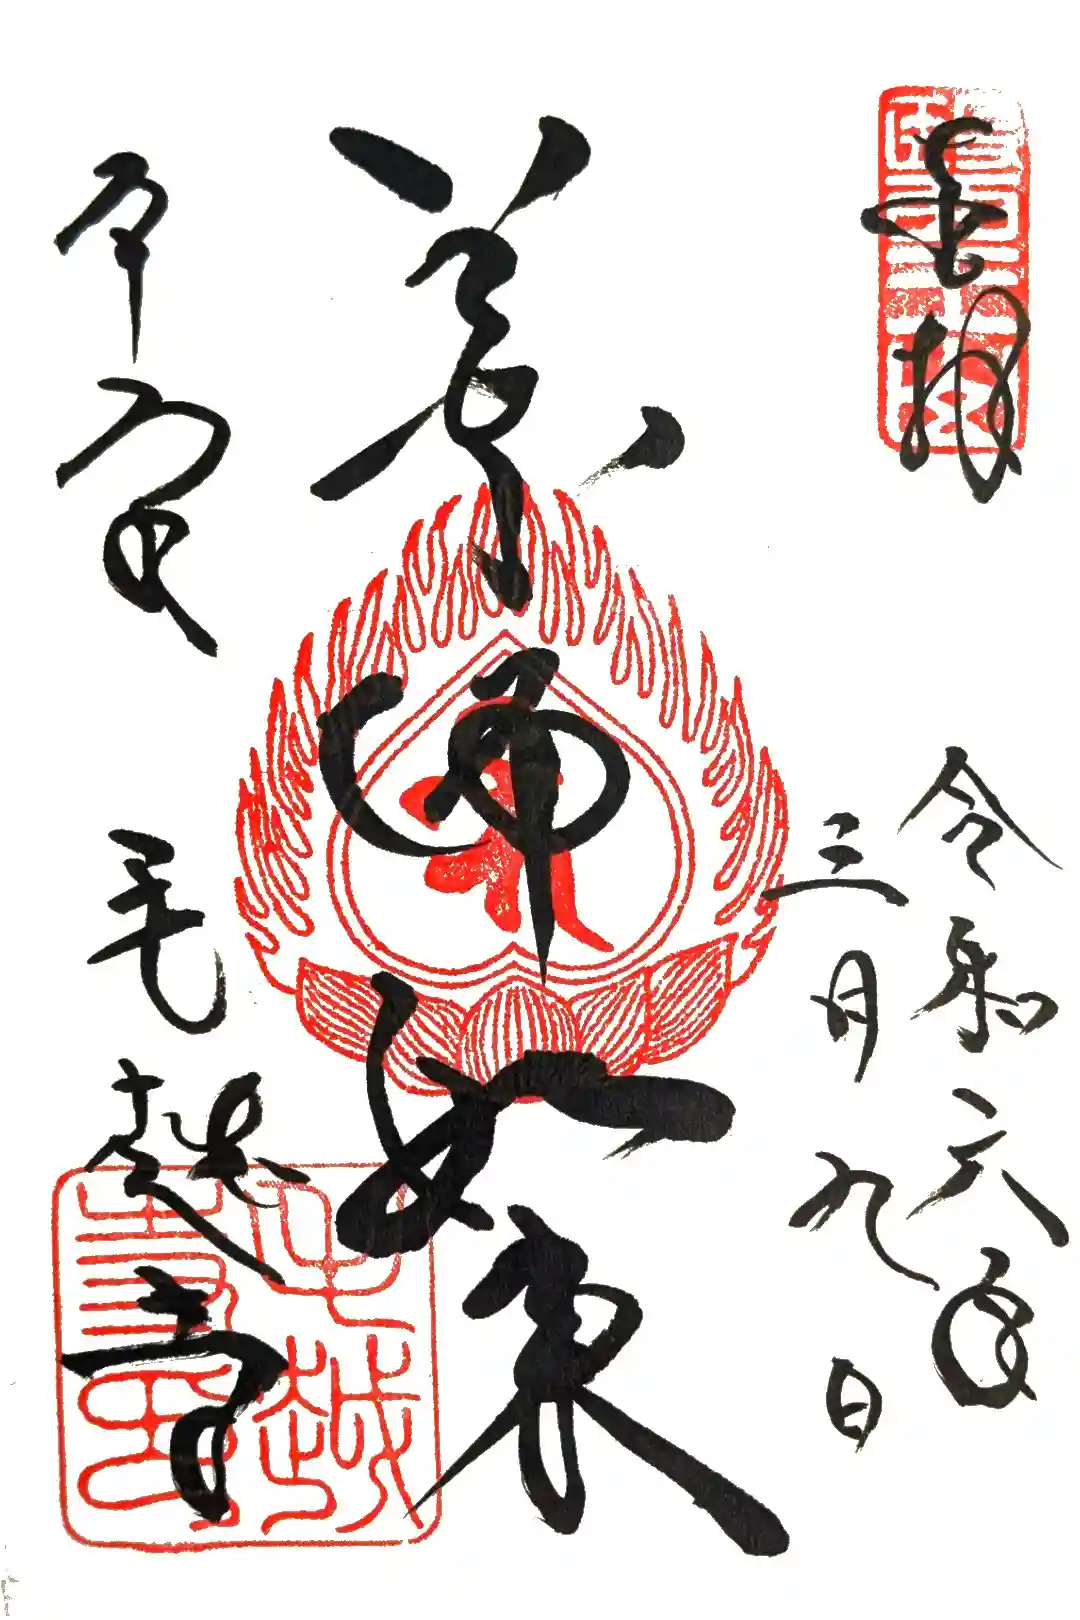 奉拝
令和六年
三月九日
薬師如来
平泉
毛越寺
毛越
寺印